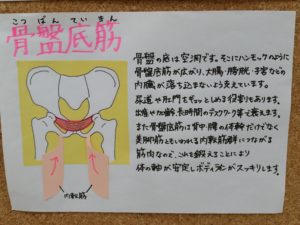 こつ ばん てい きん
骨盤底筋
骨盤の底は空洞です。そこにハンモックのように
骨盤底筋が広がり、大腸・膀胱・子宮などの
内臓が落ち込まないよう支えています。
尿道や肛門をギュッとしめる役割もあります。
出産や加齢、長時間のデスクワーク等で衰えます。
また骨盤底筋は背中・腰の体幹だけでなく
美脚筋ともいわれる内転筋群につながる
筋肉なので、これを鍛えることにより
体の軸が安定しボディラインがスッキリします。
内転筋